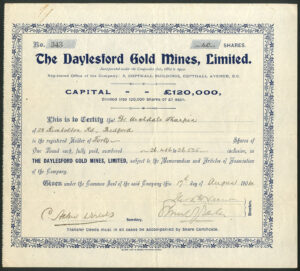 No. 343 40 SHARES.
The Daylesford Gold Mines, Limited.
Incorporated under the Companies Acts, 1862 to
Registered Office of the Company: 5, COPTHALL BUILDINGS, COPTHALL AVENUE, E.C.
CAPITAL £120,000,
Divided into 120,000 Shares of £1 each.
This is to Certify that Archdale Sharpin
of Rd. Bedford
is the registered Holder of Forty Shares of
One Pound each, fully paid, numbered inclusive, in
THE DAYLESFORD GOLD MINES, LIMITED, subject to the Memorandum and Articles of Association
of the Company.
Given under the Common Seal of the said Company this 17th day of August
Secretary.
Transfer Deeds must in all cases be accompanied by Share Certificate.